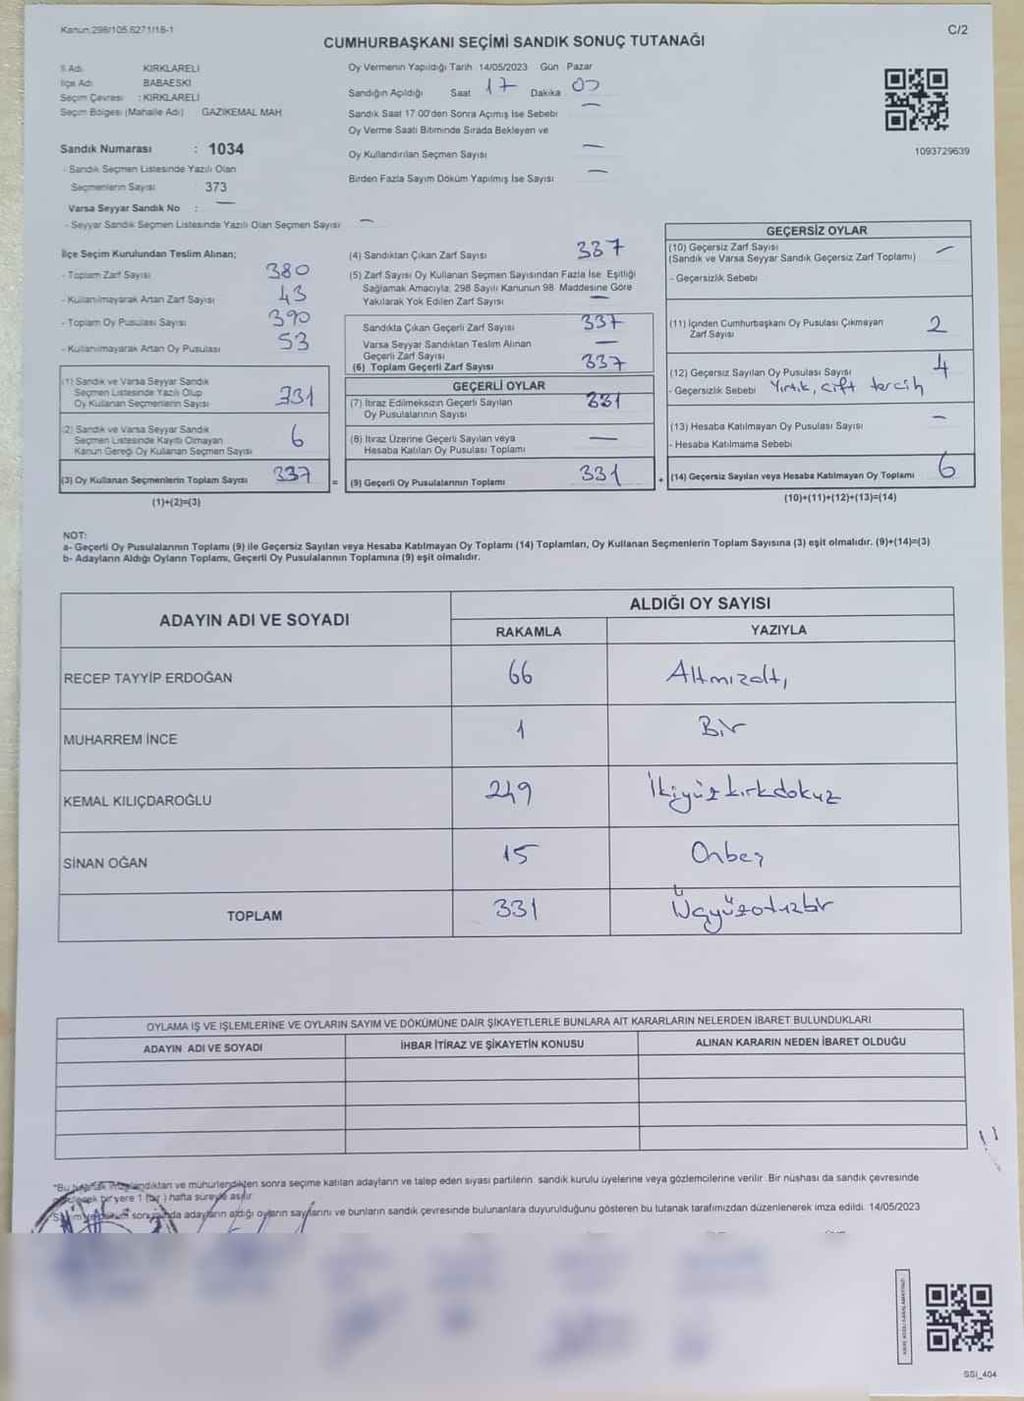 Kanun.298/105.6271/16-1
C/2
CUMHURBAŞKANI SEÇİMİ SANDIK SONUÇ TUTANAĞI
İl Adı : KIRKLARELİ
İlçe Adı : BABAESKİ
Seçim Çevresi : KIRKLARELİ
Seçim Bölgesi (Mahalle Adı) GAZİKEMAL MAH
Sandık Numarası : 1034
- Sandık Seçmen Listesinde Yazılı Olan
Seçmenlerin Sayısı 373
Varsa Seyyar Sandık No : —
- Seyyar Sandık Seçmen Listesinde Yazılı Olan Seçmen Sayısı —
Oy Vermenin Yapıldığı Tarih 14/05/2023 Gün Pazar
Sandığın Açıldığı Saat 17 Dakika 00
Sandık Saat 17.00'den Sonra Açımış İse Sebebi —
Oy Verme Saati Bitiminde Sırada Bekleyen ve
Oy Kullandırılan Seçmen Sayısı —
Birden Fazla Sayım Döküm Yapılmış İse Sayısı —
1093729639
İlçe Seçim Kurulundan Teslim Alınan;
- Toplam Zarf Sayısı 380
- Kullanılmayarak Artan Zarf Sayısı 43
- Toplam Oy Pusulası Sayısı 390
- Kullanılmayarak Artan Oy Pusulası 53
(1) Sandık ve Varsa Seyyar Sandık
Seçmen Listesinde Yazılı Olup
Oy Kullanan Seçmenlerin Sayısı 331
(2) Sandık ve Varsa Seyyar Sandık
Seçmen Listesinde Kayıtlı Olmayan
Kanun Gereği Oy Kullanan Seçmen Sayısı 6
(3) Oy Kullanan Seçmenlerin Toplam Sayısı 337
(1)+(2)=(3)
(4) Sandıktan Çıkan Zarf Sayısı 337
(5) Zarf Sayısı Oy Kullanan Seçmen Sayısından Fazla İse Eşitliği
Sağlamak Amacıyla, 298 Sayılı Kanunun 98. Maddesine Göre
Yakılarak Yok Edilen Zarf Sayısı —
Sandıkta Çıkan Geçerli Zarf Sayısı 337
Varsa Seyyar Sandıktan Teslim Alınan
Geçerli Zarf Sayısı —
(6) Toplam Geçerli Zarf Sayısı 337
GEÇERLİ OYLAR
(7) İtiraz Edilmeksizin Geçerli Sayılan
Oy Pusulalarının Sayısı 331
(8) İtiraz Üzerine Geçerli Sayılan veya
Hesaba Katılan Oy Pusulası Toplamı —
= (9) Geçerli Oy Pusulalarının Toplamı 331
GEÇERSİZ OYLAR
(10) Geçersiz Zarf Sayısı —
(Sandık ve Varsa Seyyar Sandık Geçersiz Zarf Toplamı)
- Geçersizlik Sebebi
(11) İçinden Cumhurbaşkanı Oy Pusulası Çıkmayan
Zarf Sayısı 2
(12) Geçersiz Sayılan Oy Pusulası Sayısı 4
- Geçersizlik Sebebi Yırtık, çift tercih
(13) Hesaba Katılmayan Oy Pusulası Sayısı —
- Hesaba Katılmama Sebebi
+ (14) Geçersiz Sayılan veya Hesaba Katılmayan Oy Toplamı 6
(10)+(11)+(12)+(13)=(14)
NOT:
a- Geçerli Oy Pusulalarının Toplamı (9) ile Geçersiz Sayılan veya Hesaba Katılmayan Oy Toplamı (14) Toplamları, Oy Kullanan Seçmenlerin Toplam Sayısına (3) eşit olmalıdır. (9)+(14)=(3)
b- Adayların Aldığı Oyların Toplamı, Geçerli Oy Pusulalarının Toplamına (9) eşit olmalıdır.
ADAYIN ADI VE SOYADI
ALDIĞI OY SAYISI
RAKAMLA YAZIYLA
RECEP TAYYİP ERDOĞAN 66 Altmışaltı
MUHARREM İNCE 1 Bir
KEMAL KILIÇDAROĞLU 249 İkiyüzkırkdokuz
SİNAN OĞAN 15 Onbeş
TOPLAM 331 Üçyüzotuzbir
OYLAMA İŞ VE İŞLEMLERİNE VE OYLARIN SAYIM VE DÖKÜMÜNE DAİR ŞİKAYETLERLE BUNLARA AİT KARARLARIN NELERDEN İBARET BULUNDUKLARI
ADAYIN ADI VE SOYADI İHBAR İTİRAZ VE ŞİKAYETİN KONUSU ALINAN KARARIN NEDEN İBARET OLDUĞU
*Bu tutanak imzalandıktan ve mühürlendikten sonra seçime katılan adayların ve talep eden siyasi partilerin sandık kurulu üyelerine veya gözlemcilerine verilir. Bir nüshası da sandık çevresinde
bir yere 1 (bir) hafta süreyle asılır
sonunda adayların aldığı oyların sayılarını ve bunların sandık çevresinde bulunanlara duyurulduğunu gösteren bu tutanak tarafımızdan düzenlenerek imza edildi. 14/05/2023
SSI_404